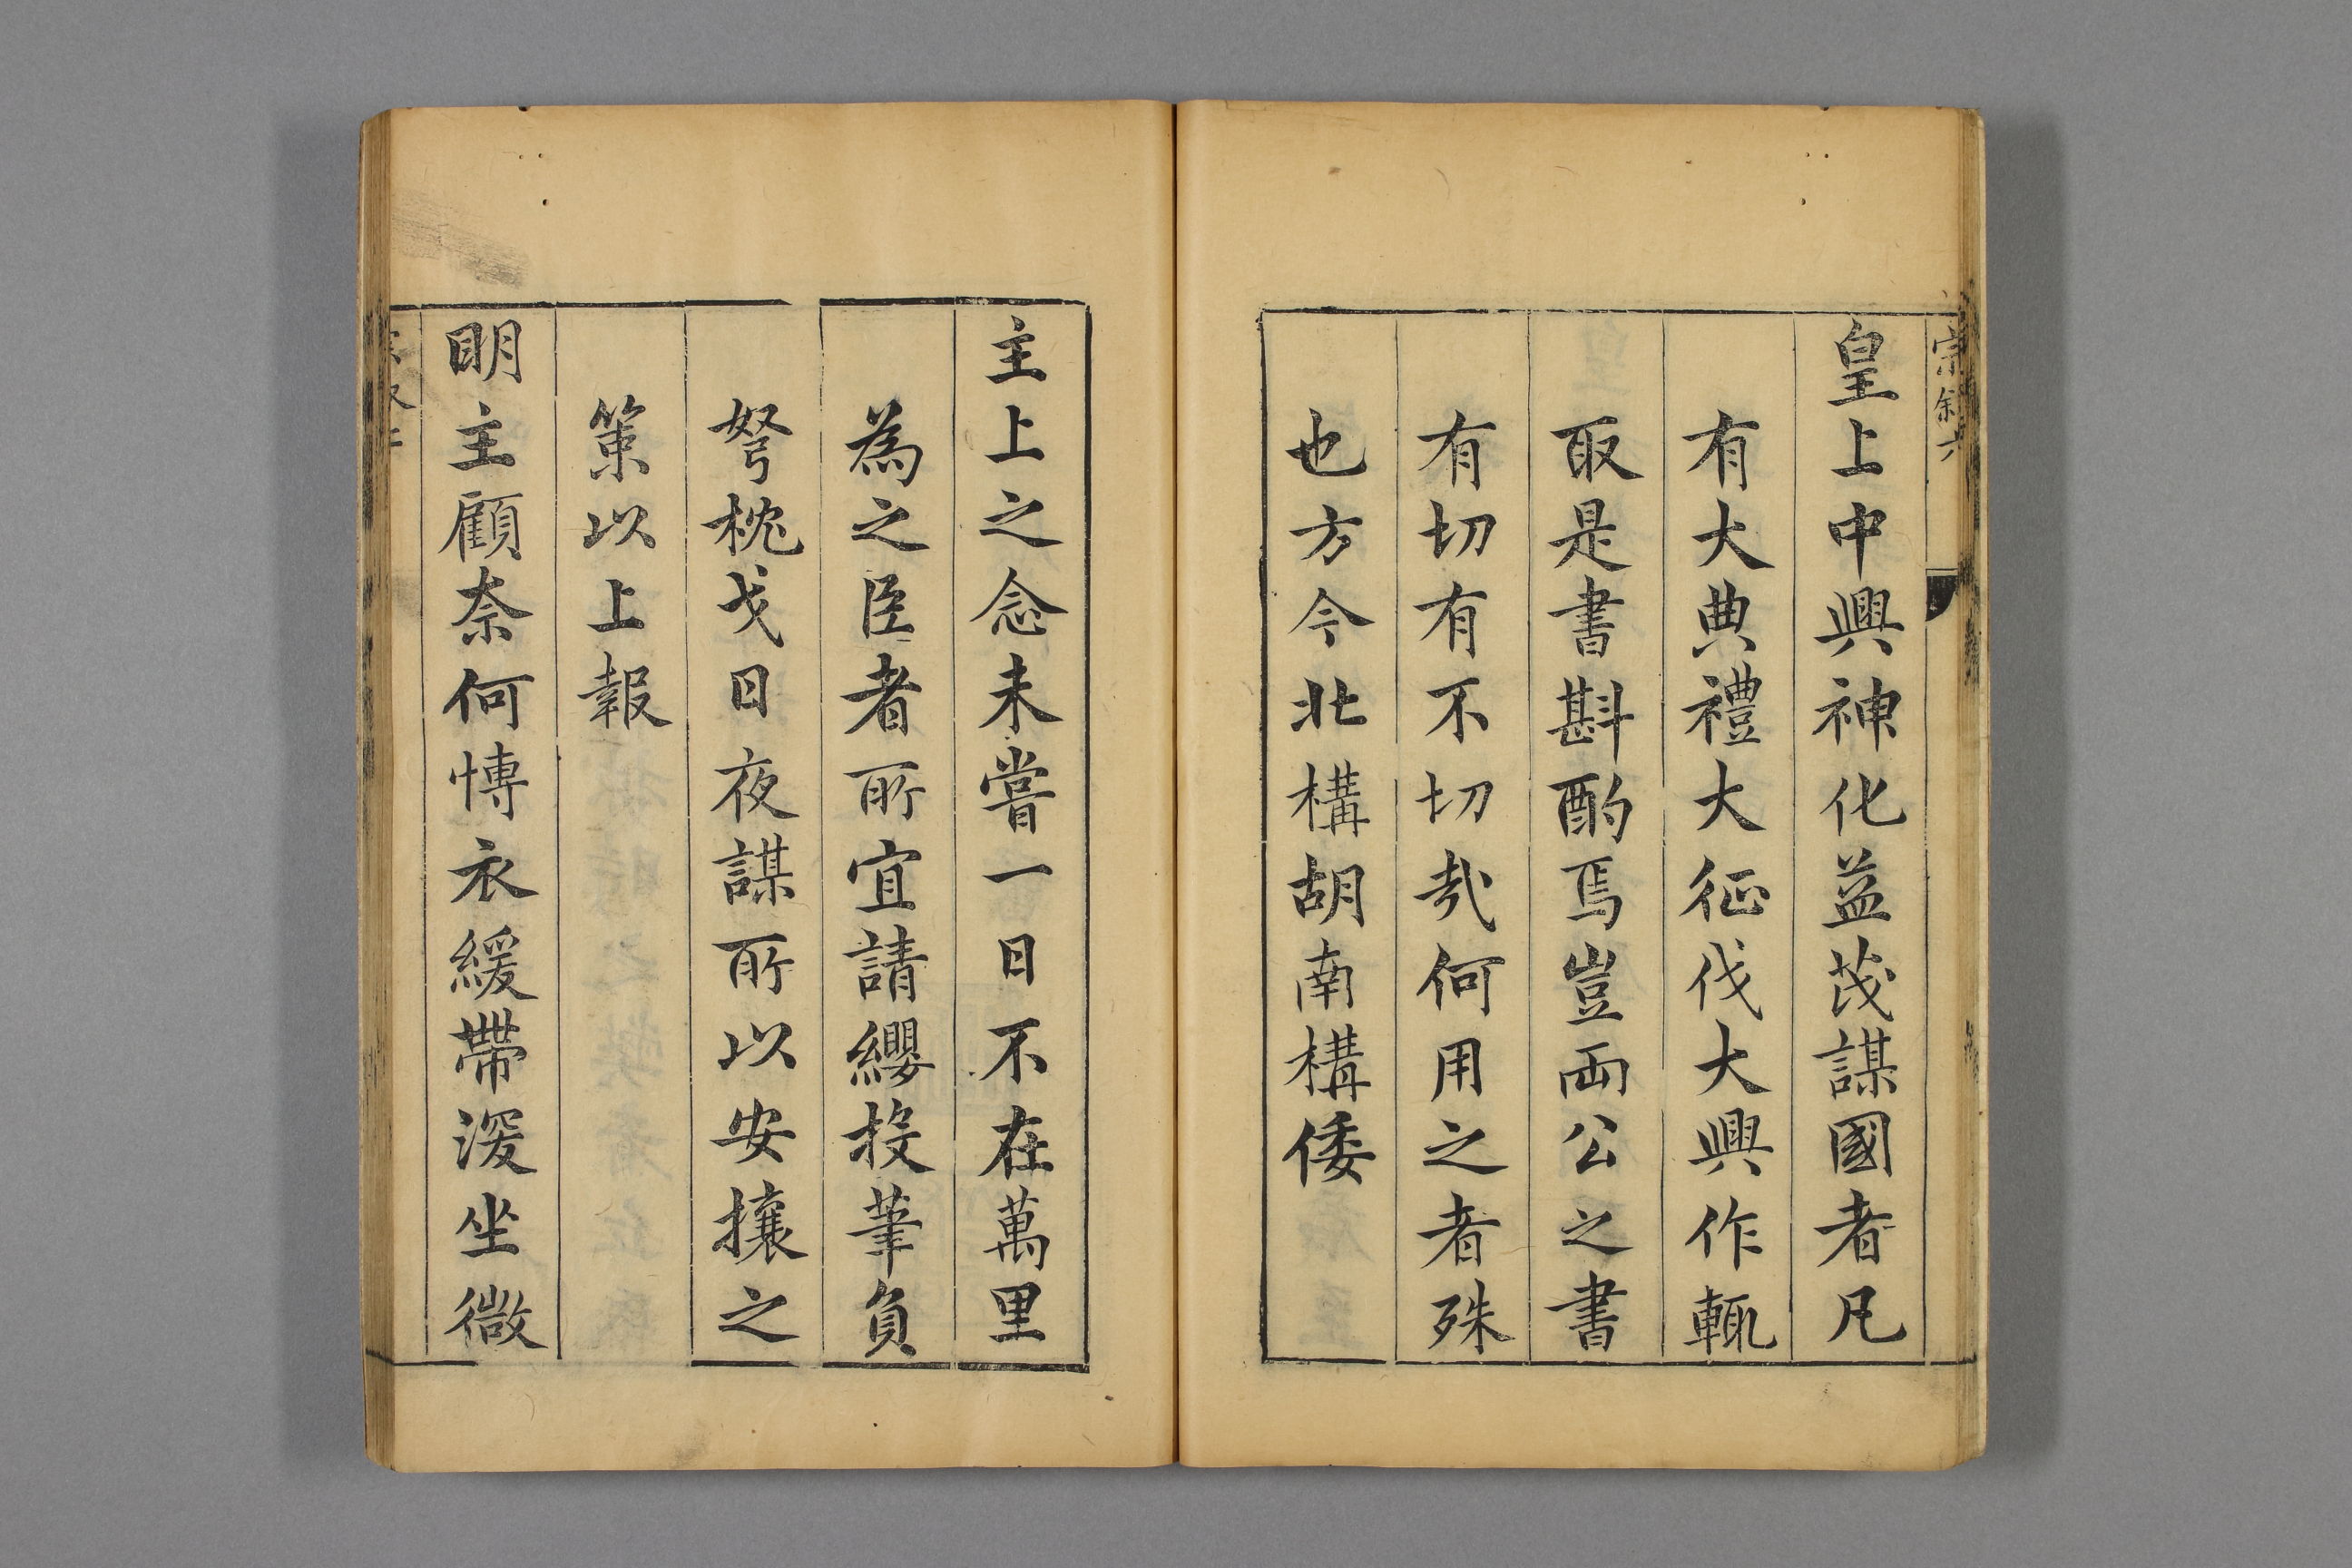 崇敘六
皇上中興神化益茂謀國者凡
有大典禮大征伐大興作輒
取是書斟酌焉豈兩公之書
有切有不切哉何用之者殊
也方今北構胡南構倭
主上之念未嘗一日不在萬里
為之臣者所宜請纓投筆負
弩枕戈日夜謀所以安攘之
策以上報
明主顧奈何愽衣緩帶深坐微